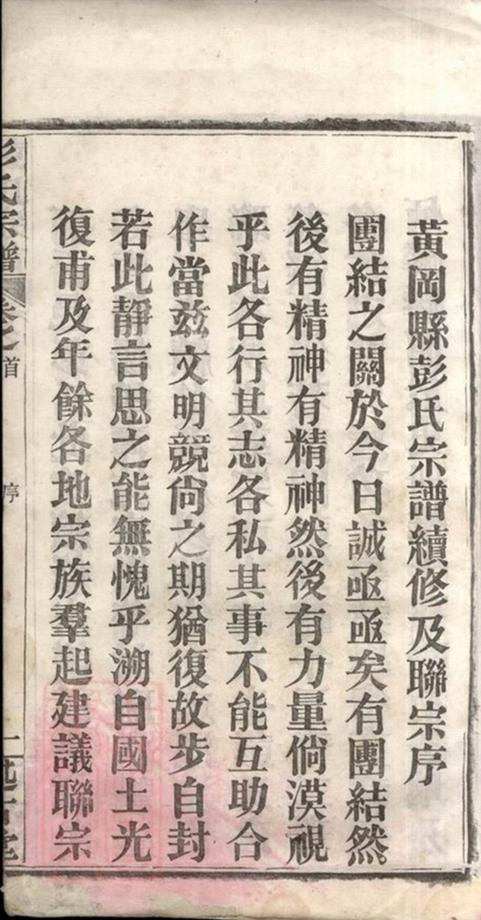 黃岡縣彭氏宗譜續修及聯宗序
團結之關於今日誠亟亟矣有團結然
後有精神有精神然後有力量倘漠視
乎此各行其志各私其事不能互助合
作當茲文明競尙之期猶復故步自封
若此靜言思之能無愧乎溯自國土光
復甫及年餘各地宗族羣起建議聯宗
彭氏宗譜
卷之首
序
一